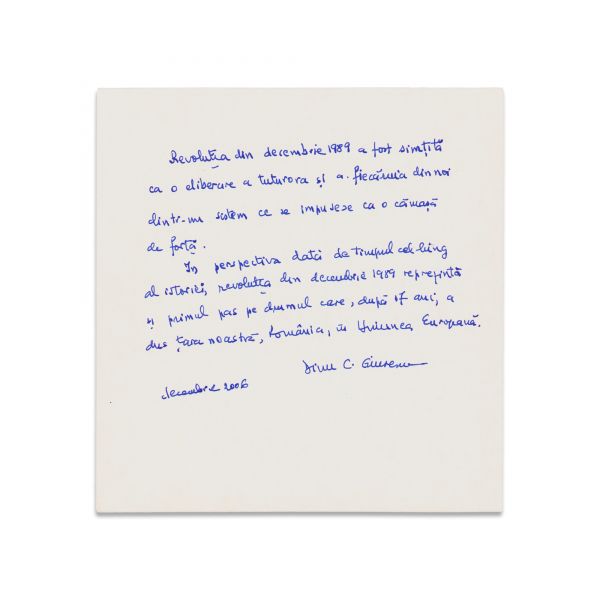 Revoluția din decembrie 1989 a fost simțită
ca o eliberare a tuturora și a fiecăruia din noi
dintr-un sistem ce se impusese ca o cămașă
de forță.
În perspectiva dată de timpul cel lung
al istoriei, revoluția din decembrie 1989 reprezintă
și primul pas pe drumul care, după 17 ani, a
dus țara noastră, România, în Uniunea Europeană.
Dinu C. Giurescu
decembrie 2006